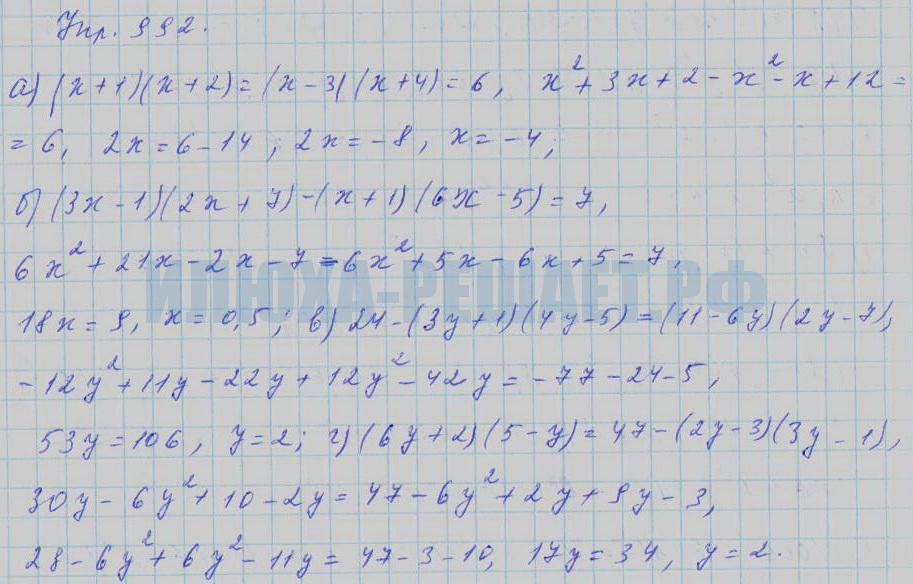 Упр. 992.
а) (x+1)(x+2)=(x-3)(x+4)=6, x²+3x+2-x²-x+12=
=6, 2x=6-14; 2x=-8, x=-4;
б) (3x-1)(2x+7)-(x+1)(6x-5)=7,
6x²+21x-2x-7-6x²+5x-6x+5=7,
ИЛЮХА-РЕШАЕТ.РФ
18x=9, x=0,5; в) 24-(3y+1)(4y-5)=(11-6y)(2y-7),
-12y²+11y-22y+12y²-42y=-77-24-5,
53y=106, y=2; г) (6y+2)(5-y)=47-(2y-3)(3y-1),
30y-6y²+10-2y=47-6y²+2y+9y-3,
28-6y²+6y²-11y=47-3-10, 17y=34, y=2.